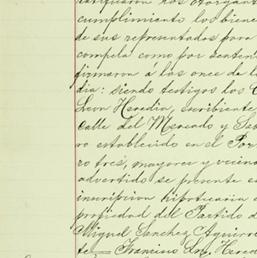 ratificaron los otorgant
cumplimiento los biene
de sus representados para
compela como por senten
firmaron a los once de la
dia: siendo testigos los
Leon Heredia, escribiente
calle del Mercado y
ro establecido en el Por
ro tres, mayores y vecino
advertido se presente e
inscripcion hipotecaria
propiedad del Partido d
Miguel Sanchez Aguirre
Francisco Leon Hered